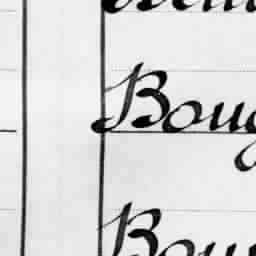 Boug
Bou